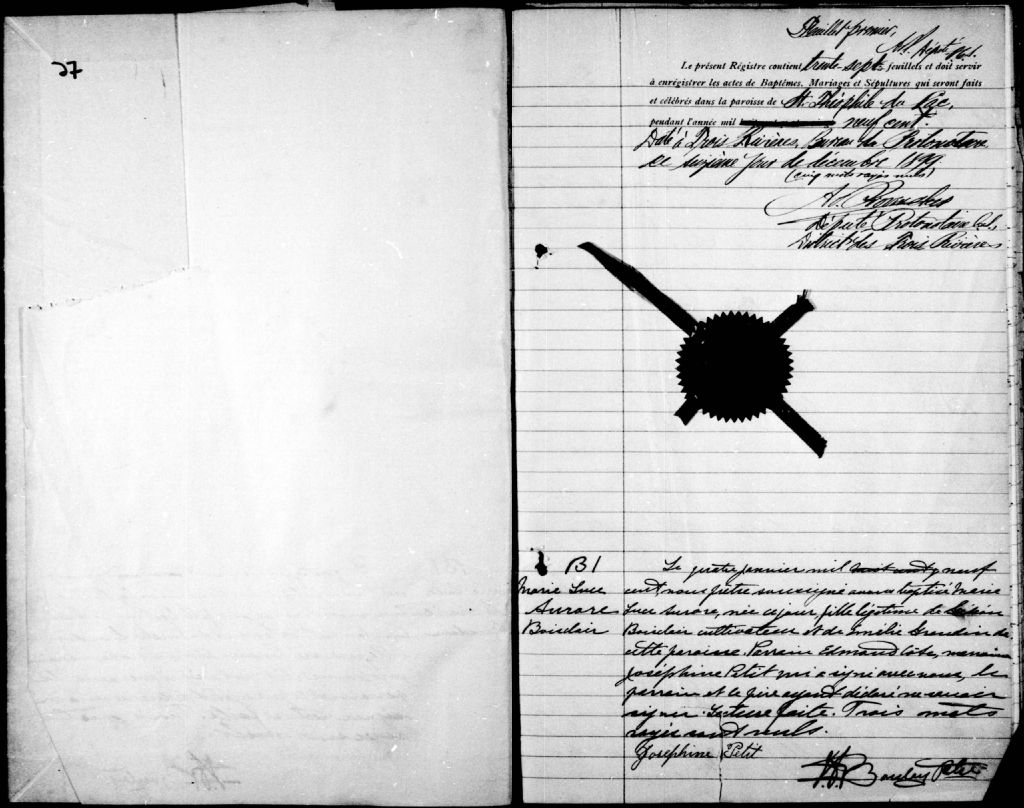 27
Feuillet premier,
Dépté P.C.S.
Le présent Régistre contient trente-sept feuillets et doit servir
à enrégistrer les actes de Baptêmes, Mariages et Sépultures qui seront faits
et célébrés dans la paroisse de St. Théophile du Lac,
pendant l'année mil neuf cent.
Daté à Trois Rivières, Bureau du Protonotaire
ce onzième jour de décembre 1899.
(cinq mots rayés nuls)
Député Protonotaire C.S.
District des Trois Rivières
B1
Marie Luce
Aurore
Boisclair
Le quatre janvier mil neuf
cent nous prêtre soussigné avons baptisé Marie
Luce Aurore, née ce jour, fille légitime de
Boisclair cultivateur et de Emélie Grondin de
cette paroisse. Parrain Edmond Côté, marraine
Joséphine Petit qui a signé avec nous, le
parrain et le père ayant déclaré ne savoir
signer. Lecture faite. Trois mots
rayés sont nuls.
Joséphine Petit
Ptre